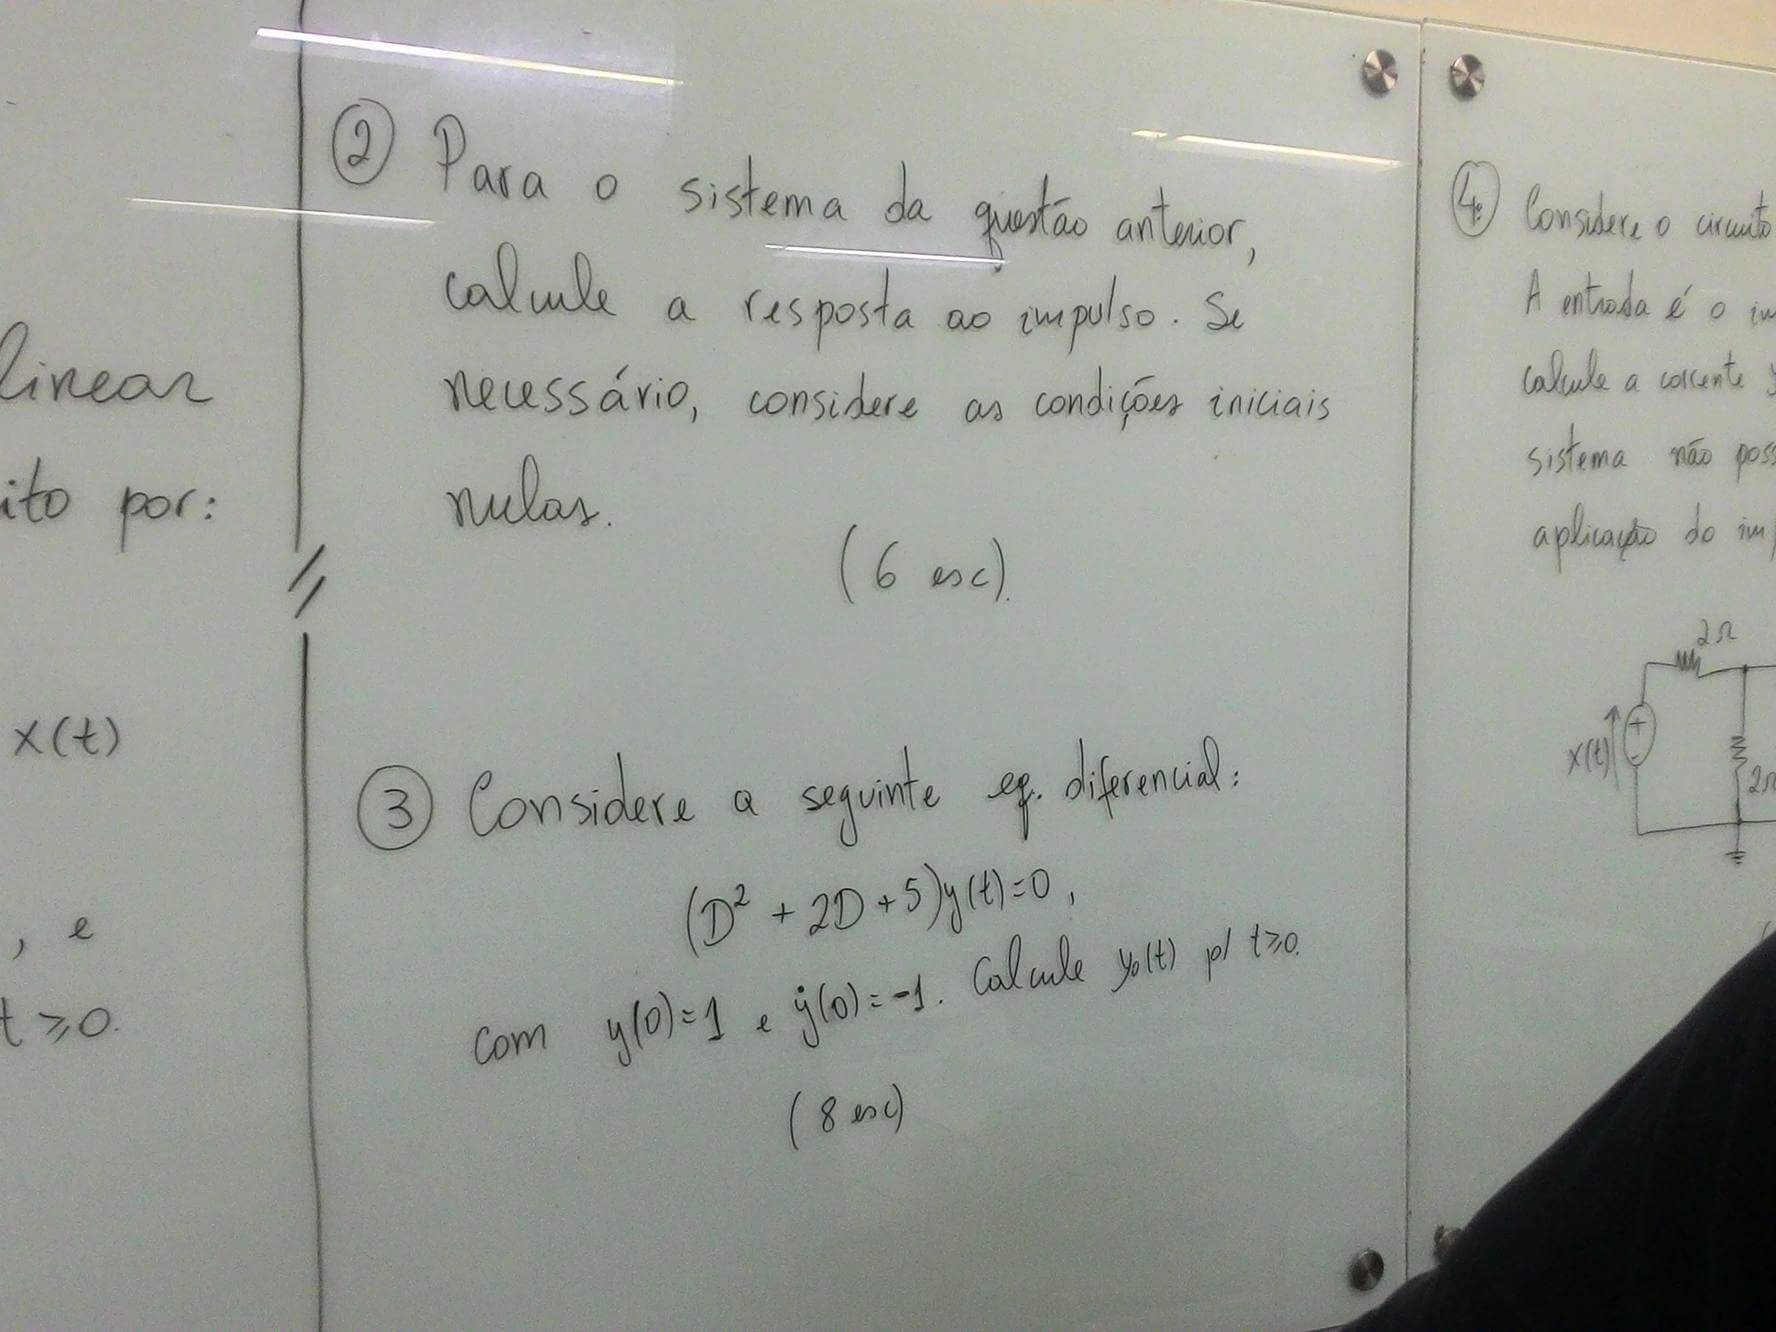 linear
ito por:
x(t)
, e
t ≥ 0.
② Para o sistema da questão anterior,
calcule a resposta ao impulso. Se
necessário, considere as condições iniciais
nulas.
(6 esc).
③ Considere a seguinte eq. diferencial:
(D² + 2D + 5)y(t)=0,
com y(0)=1 e ẏ(0)=-1. Calcule y₀(t) p/ t≥0.
(8 esc)
④ Considere o circuito
A entrada é o im
calcule a corrente y
sistema não poss
aplicação do imp
2Ω
x(t)
+
-
2Ω